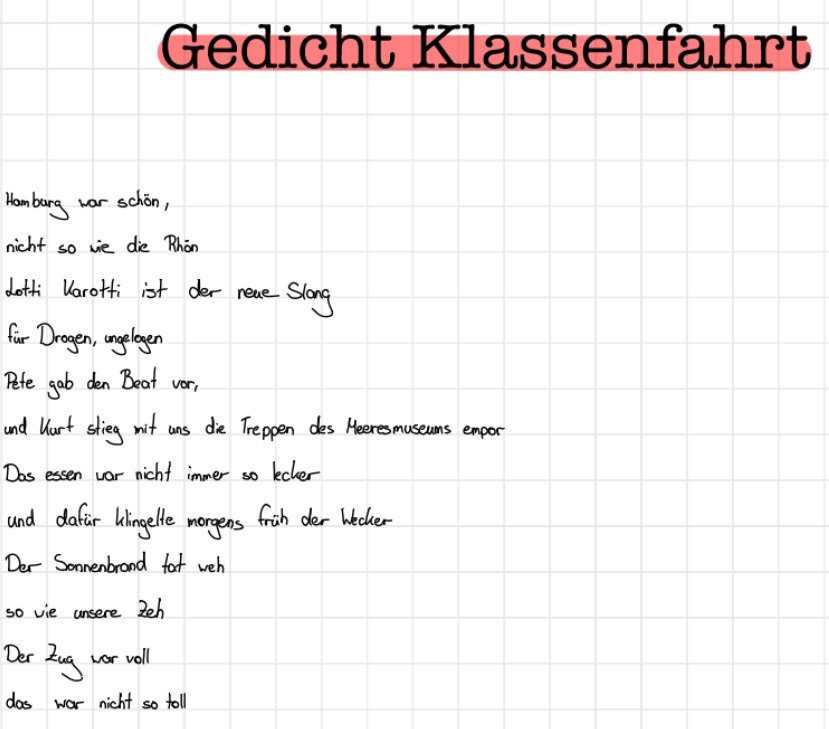 Gedicht Klassenfahrt
Hamburg war schön,
nicht so wie die Rhön
Lotti Karotti ist der neue Slang
für Drogen, ungelogen
Pete gab den Beat vor,
und Kurt stieg mit uns die Treppen des Meeresmuseums empor
Das essen war nicht immer so lecker
und dafür klingelte morgens früh der Wecker
Der Sonnenbrand tat weh
so wie unsere Zeh
Der Zug war voll
das war nicht so toll